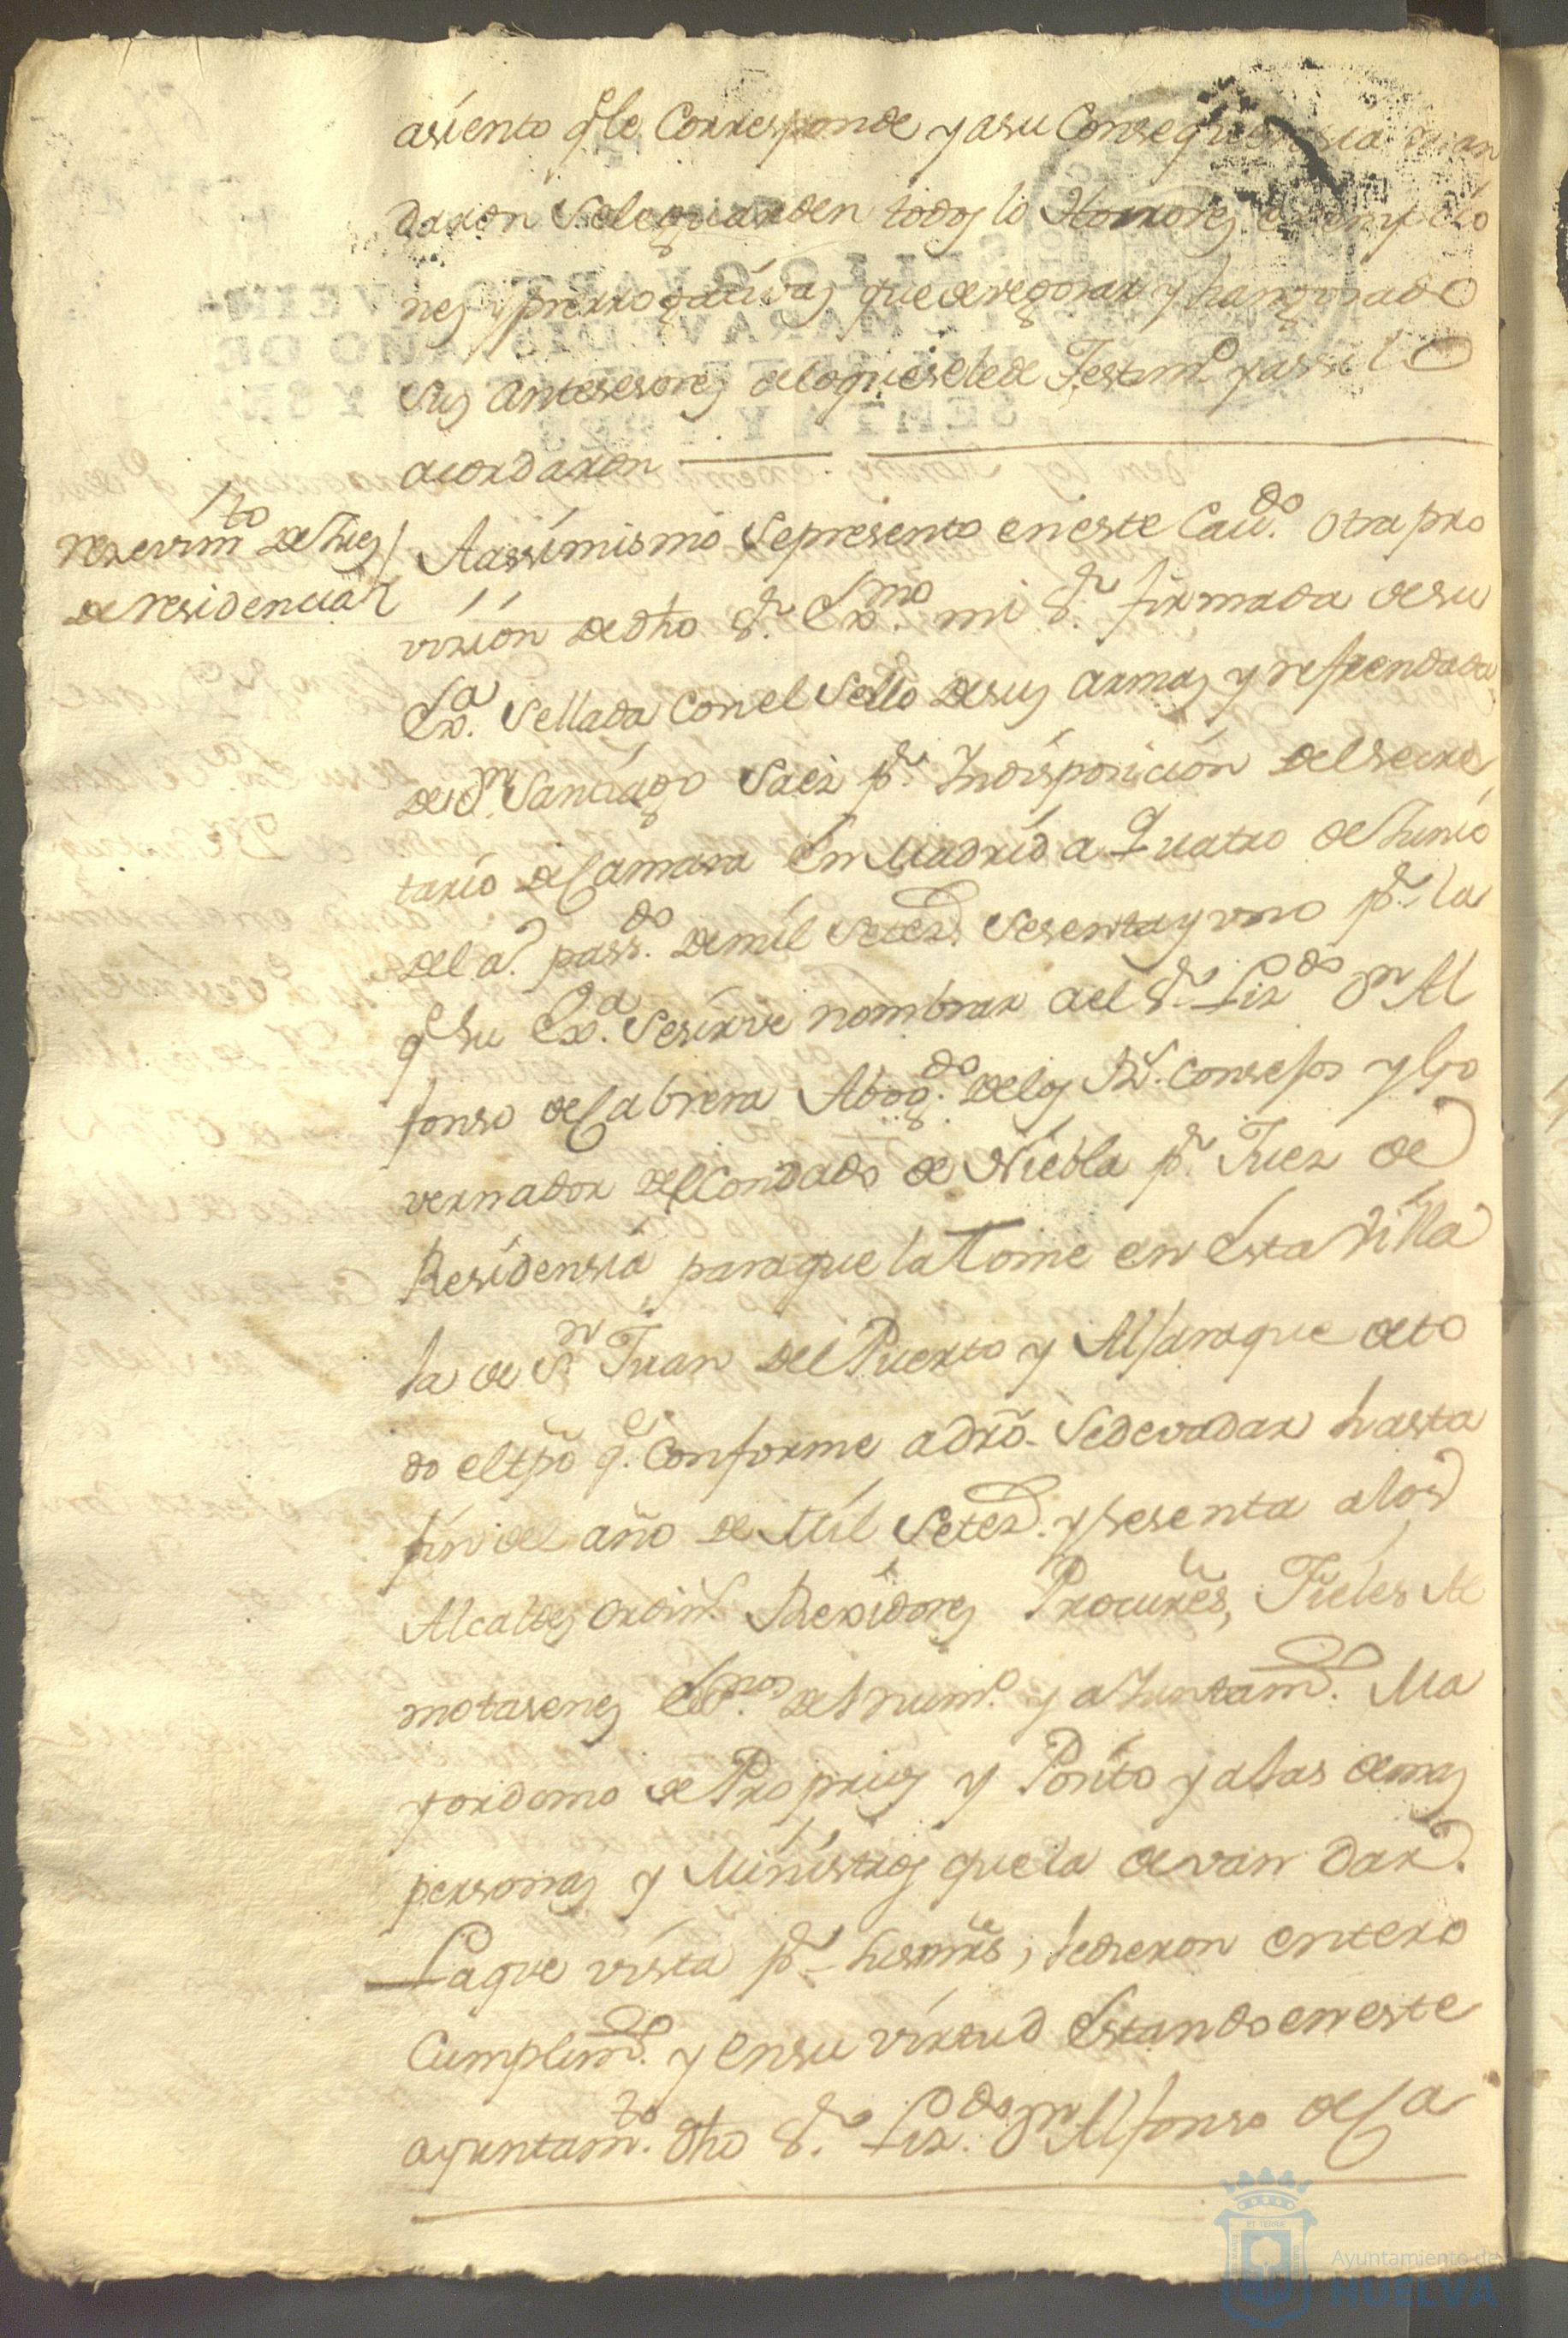 asiento q.e le Corresponde y asu Consequencia man
daron se le guarden todos lo Honores exempcio
nes y prerrogativas que deve gosar y han gosado
sus antesesores de lo que se le de Testim.o y assi lo
acordaron
rezevim.to de Juez
de residencia
Aassimismo se presento en este Cav.do otra pro
vizion de dho S.r Ex.mo mi S.r firmada de su
Ex.a Sellada con el Sello de sus armas y refrendada
de D.n Santiago Saez p.r Indisposicion del secre
tario de Camara En Madrid a Quatro de Junio
del a.o pass.do de mil setez.s sesenta y uno p.r la
q.e su Ex.a se sirve nombrar a el S.r Liz.do D.n Al
fonso de Cabrera Abog.do de los R.s Consejos y Go
vernador del Condado de Niebla p.r Juez de
Residensia para que la tome en Esta Villa
la de S.n Juan del Puerto y Aljaraque de to
do el tpo q.e Conforme a dro. se deva dar hasta
fin del año de Mil Setez.s y sesenta a los
Alcaldes ordin.s Rexidores Procur.es, Fieles Al
motasenes Es.nos del num.o y aJuntam.to Ma
yordomo de Proprios y Posito y a las demas
personas y Ministros que la devan dar.
La que vista p.r sus mrs., le dieron entero
Cumplim.to y en su virtud Estando en este
ayuntam.to dho S.r Liz.do D.n Alfonso de Ca
Ayuntamiento de
HUELVA